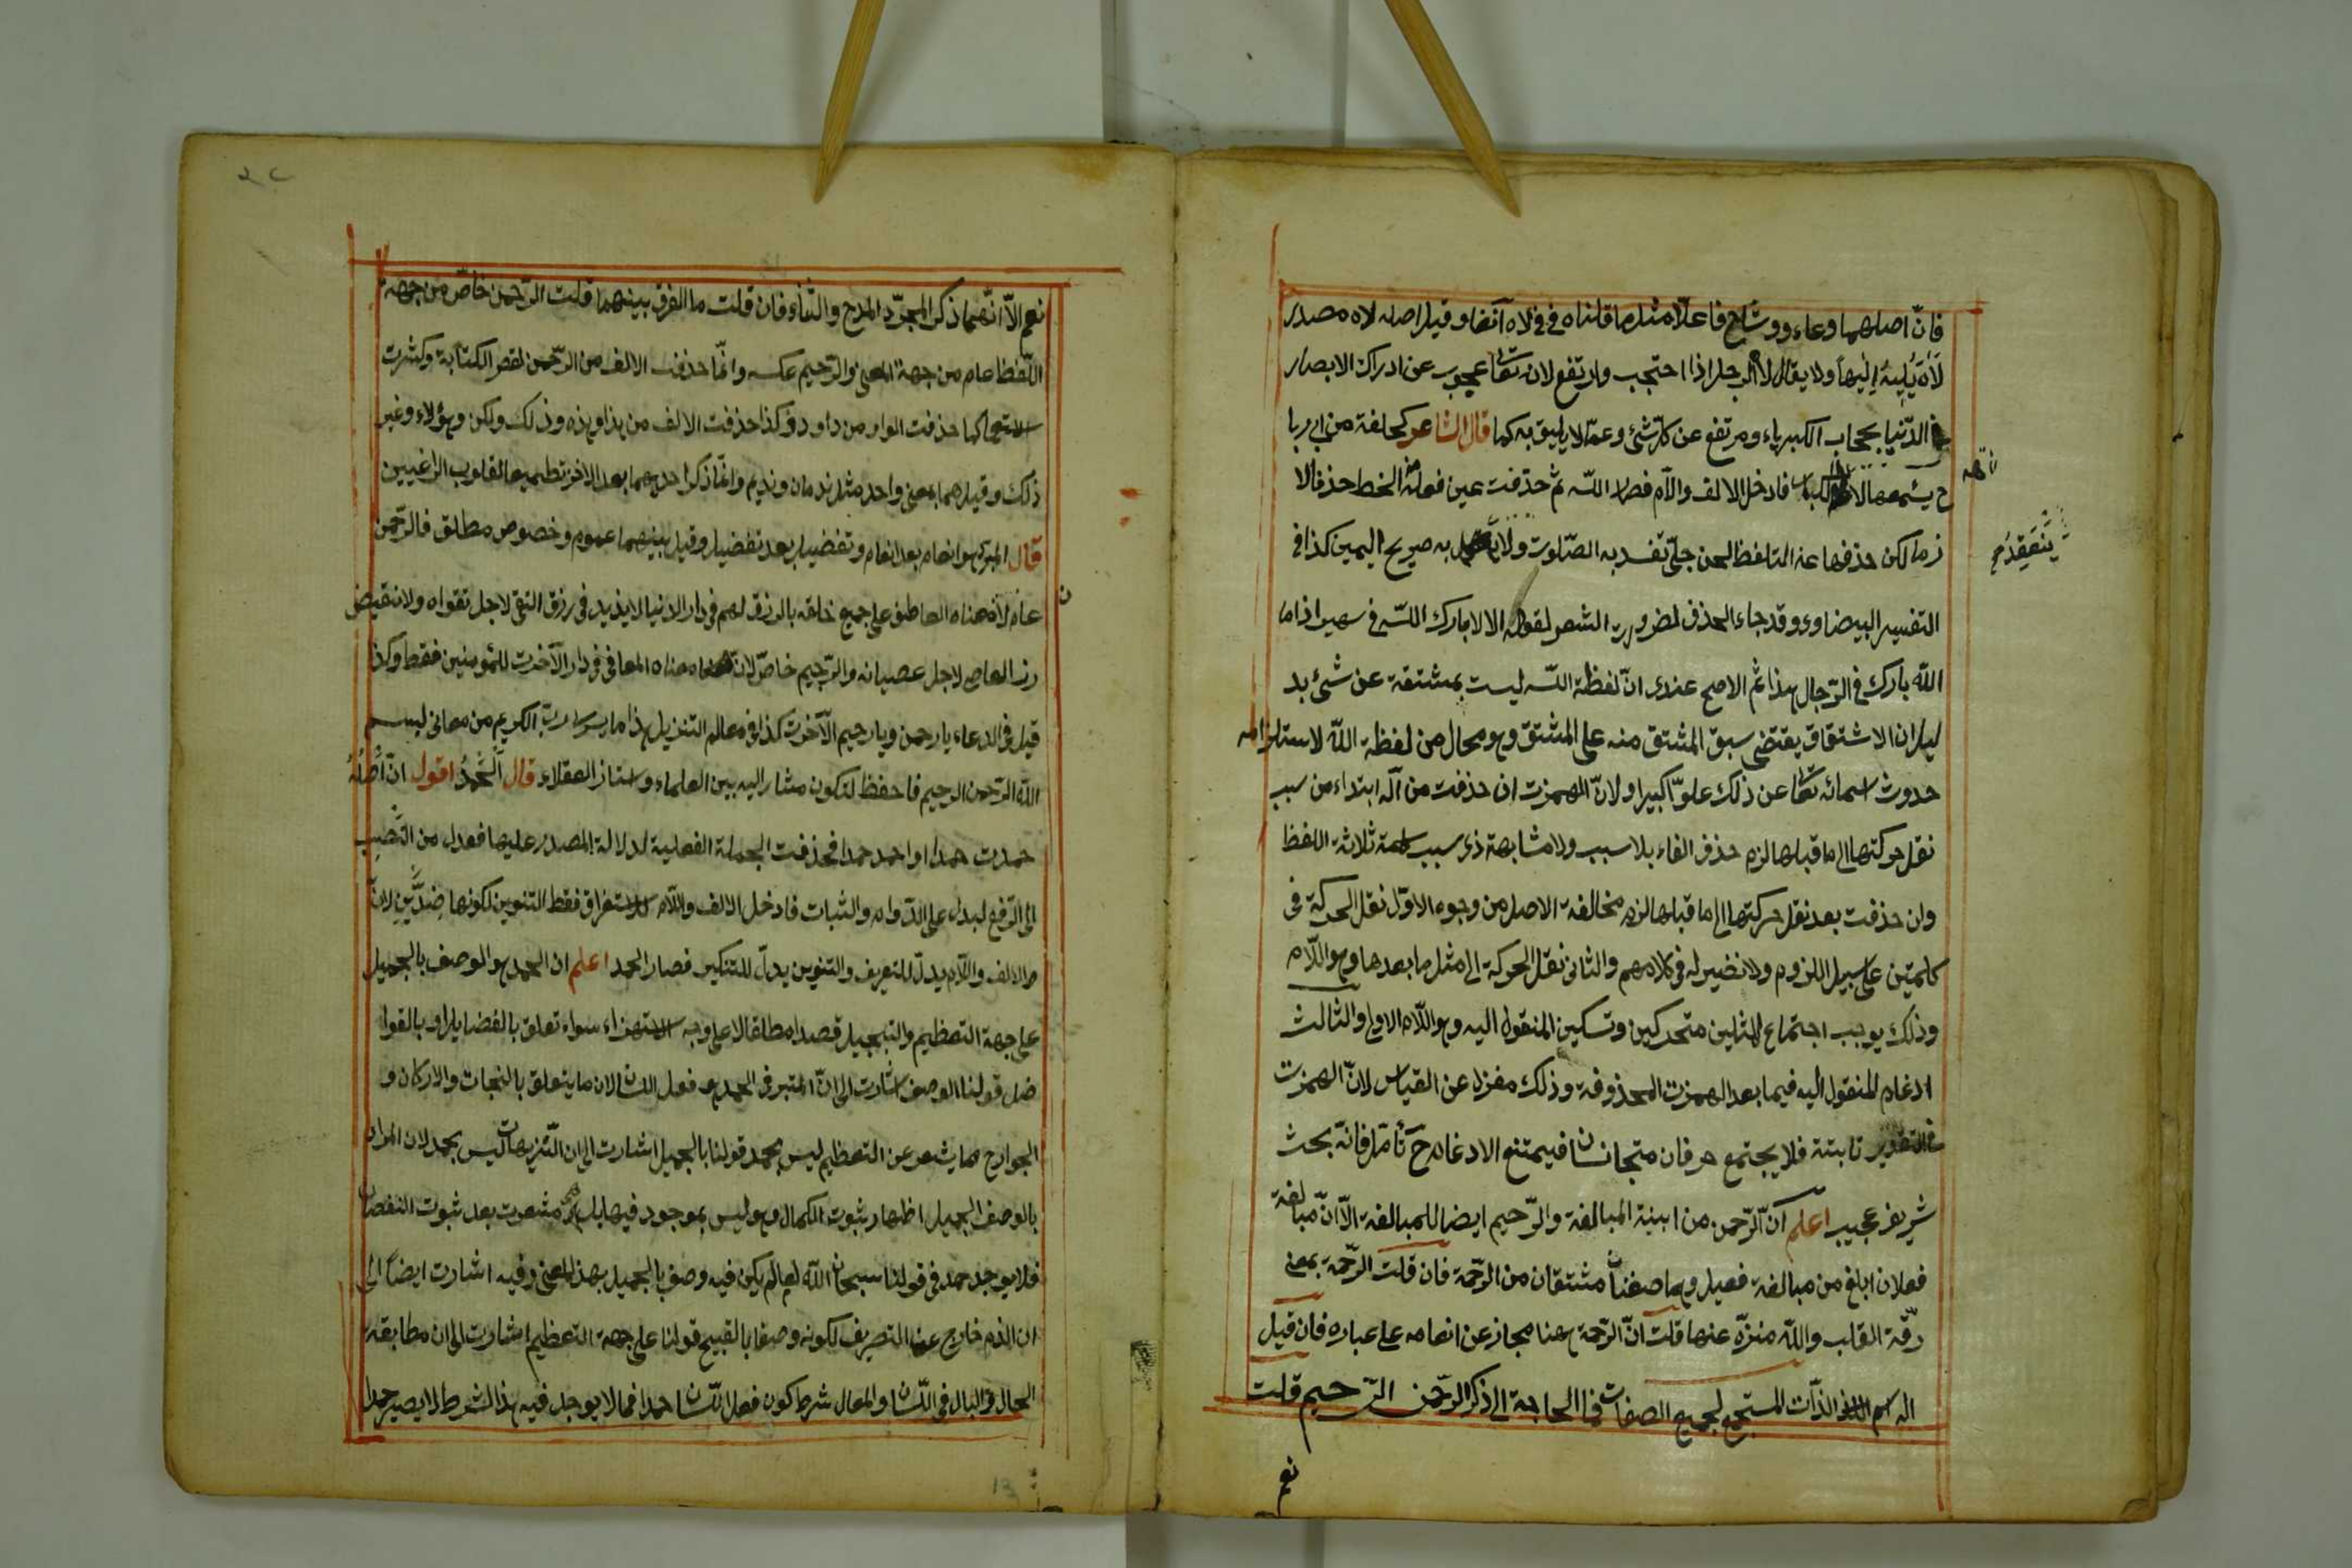 فانّ اصلهما وعاء ووشاح فاعلّا مثل ما قلناه في ولاه آنفا وقيل اصله لاه مصدر
لَاهَ يَلِيهُ لَيْهاً ولا يقال لاه الرجل اذا احتجب وارتفع لانه تعا محجوب عن ادراك الابصار
في الدّنيا بحجاب الكبرياء ومرتفع عن كلّ شئ وعمّا لا يليق به كما قال الشاعر كحلفة من ابى رباح
يسمعها لاهه الكبار فادخل الالف واللّام فصار اللّه ثم حذفت عين فعله من الخط حذفا لا
زما لكن حذفها عند التلفظ لحن جلىّ تفسد به الصّلوت ولا ينعقد به صريح اليمين كذا في
التفسير البيضاوى وقد جاء الحذف لضرورت الشعر لقوله الا لا بارك اللّه في سهيل اذا ما
اللّه بارك في الرّجال هذا ثم الاصح عندى انّ لفظة اللّه ليست بمشتقة عن شئ بد
ليل ان الاشتقاق يقتضى سبق المشتق منه على المشتق وهو محال من لفظة اللّه لاستلزامه
حدوث اسمائه تعا عن ذلك علوّا كبيرا ولانّ الهمزت ان حذفت من اله ابتداء من سبب
نقل حركتها الى ما قبلها لزم حذف الفاء بلا سبب ولا مشابهة ذى سبب كلمة ثلاثة اللفظ
وان حذفت بعد نقل حركتها الى ما قبلها لزم مخالفة الاصل من وجوه الاوّل نقل الحركة في
كلمتين على سبيل اللزوم ولا نضير له في كلامهم والثانى نقل الحركة الى مثل ما بعدها وهو اللّام
وذلك يوجب اجتماع المثلين متحركين وتسكين المنقول اليه وهو اللّام الاولى والثالث
ادغام المنقول اليه فيما بعد الهمزت المحذوفة وذلك مفزل عن القياس لانّ الهمزت
في التقدير ثابتة فلا يجتمع حرفان متجانسان فيمتنع الادغام ح تأمّل فانّه بحث
شريف عجيب اعلم انّ الرّحمن من ابنية المبالغة والرّحيم ايضا للمبالغة الّا انّ مبالغة
فعلان ابلغ من مبالغة فعيل وهما صفتان مشتقان من الرّحمة فان قلت الرّحمة بمعنى
رقّة القلب واللّه منزّه عنها قلت انّ الرّحمة ههنا مجاز عن انعامه على عباده فان قيل
اله اسم الذّات المستجمع لجميع الصفات فما الحاجة الى ذكر الرّحمن الرّحيم قلت
نعم
ينعقد
نعم الّا انّهما ذكرا لمجرّد المدح والثّناء فان قلت ما الفرق بينهما قلت الرّحمن خاصّ من جهة
اللّفظ عام من جهة المعنى والرّحيم عكسه وانّما حذفت الالف من الرّحمن لقصر الكتابة وكثرت
الاستعمال كما حذفت الواو من داود وكذا حذفت الالف من هذا وهذه وذلك ولكن وهؤلاء وغير
ذلك وقيل هما بمعنى واحد مثل ندمان ونديم وانّما ذكر احدهما بعد الاخر تطميعا لقلوب الراغبين
قال المبرد هو انعام بعد انعام وتفضيل بعد تفضيل وقيل بينهما عموم وخصوص مطلق فالرّحمن
عام لان معناه العاطف على جميع خلقه بالرزق لهم في دار الدنيا لا يذيد في رزق التقى لاجل تقواه ولا ينقص
رزق العاصى لاجل عصيانه والرّحيم خاصّ لانّ معناه المعافى في دار الآخرت للمؤمنين فقط وكذا
قيل في الدعاء يا رحمن ويا رحيم الآخرت كذا في معالم التنزيل هذا ما يسر لى ربّ الكريم من معانى بسم
اللّه الرّحمن الرحيم فاحفظ لتكون مشار اليه بين العلماء وستاز العقلاء قال اَلْحَمْدُ اقول انّ اَصْلُهُ
حمدت حمدا او احمد حمدا فحذفت الجملة الفعلية لدلالة المصدر عليها فعدل من النَّصْبِ
الى الرّفع ليدل على الدّوام والثبات فادخل الالف واللّام للاستغراق فقط التنوين لكونها ضِدَّيْنِ لانّ
الالف واللّام يدلّ للتعريف والتنوين يدلّ للتنكير فصار الحمد اعلم ان الحمد هو الوصف بالجميل
على جهة التعظيم والتبجيل قصدا مطلقا لا على وجه الاستهزاء سواء تعلق بالفضايل او بالفوا
ضل قولنا الوصف اشارت الى انّ المعتبر في الحمد هو فعل اللسان لان ما يتعلق بالنجات والاركان و
الجوارح مما يشعر عن التعظيم ليس بحمد قولنا بالجميل اشارت الى ان التّنزيهات ليس بحمد لان المراد
بالوصف الجميل اظهار ثبوت الكمال وهو ليس بموجود فيها بل هى مشعرت بعد ثبوت النقصان
فلا يوجد حمد في قولنا سبحان اللّه لما لم يكن فيه وصف بالجميل بهذا المعنى وفيه اشارت ايضاً الى
ان الذم خارج عن التعريف لكونه وصفا بالقبيح قولنا على جهة التعظيم اشارت الى ان مطابقة
الحال والبال في اللّسان والمعال شرط كون فعل اللّسان حمدا فما لا يوجد فيه هذا الشرط لا يصير حمدا